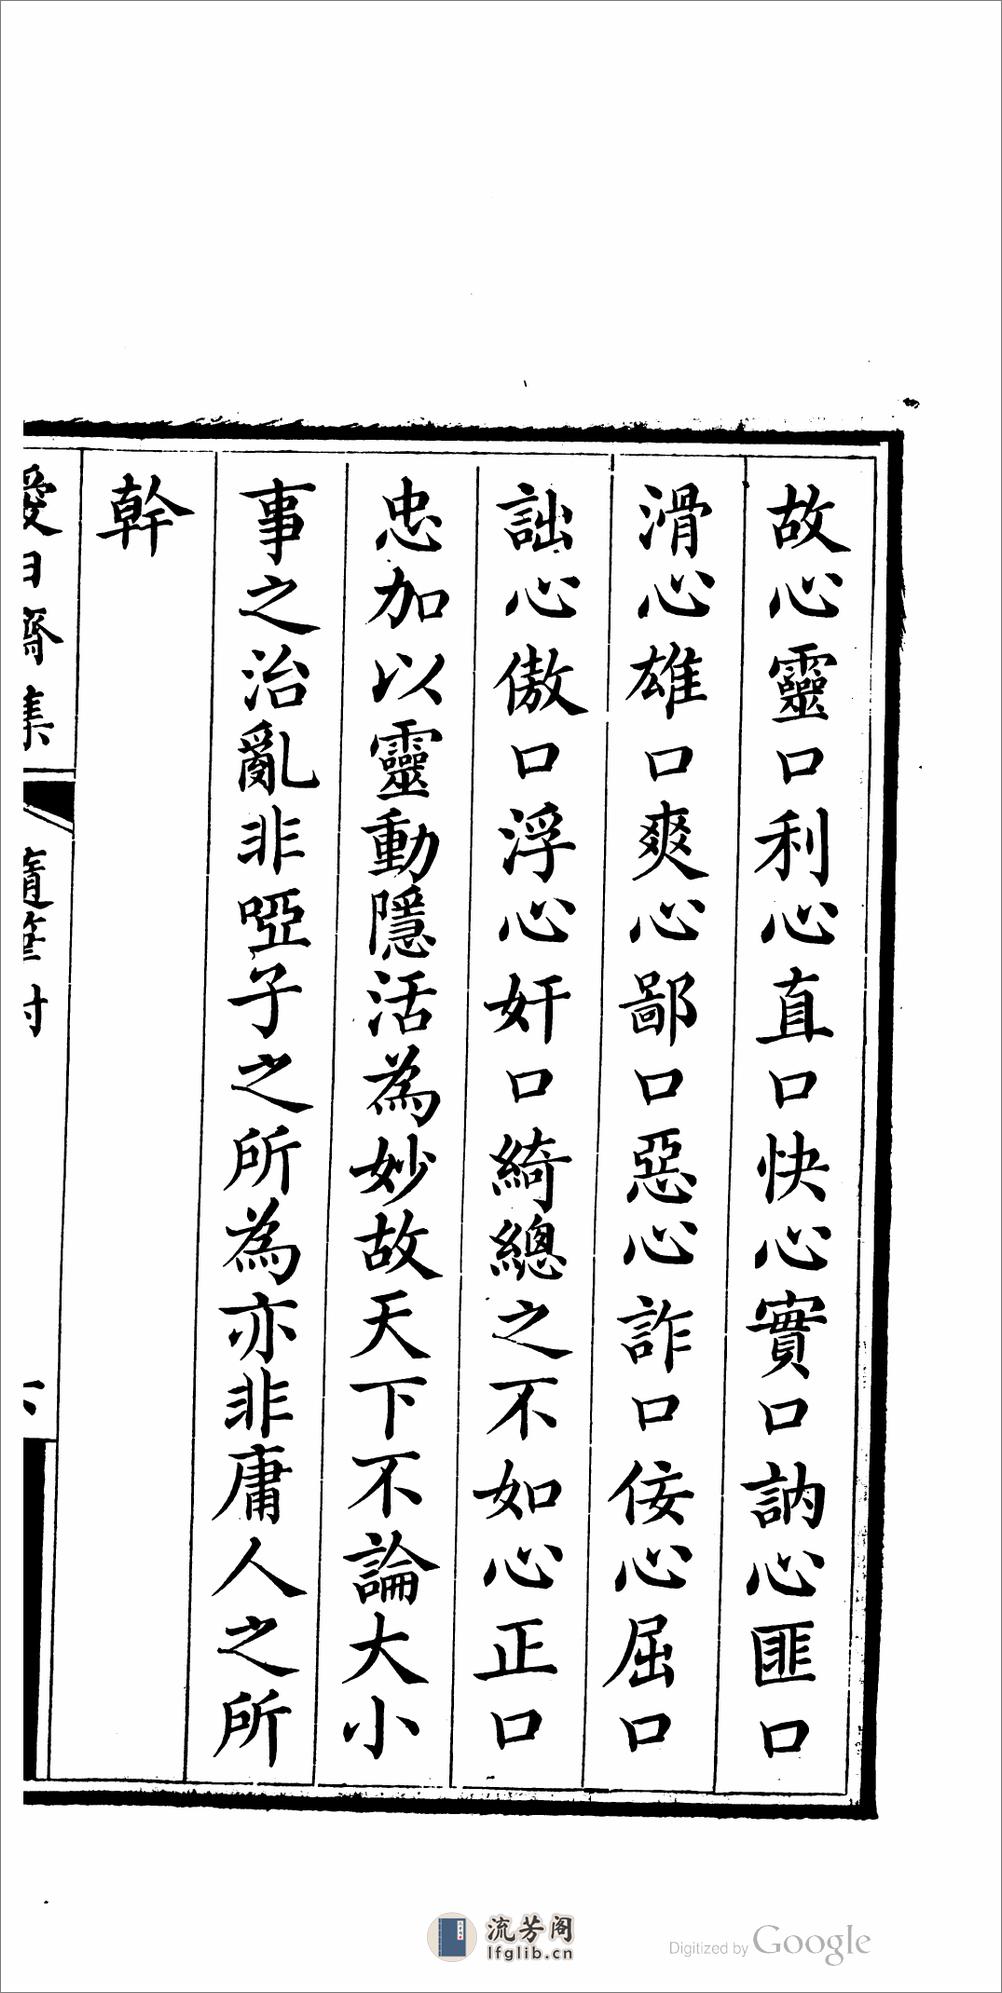 故心靈口利心直口快心實口訥心匪口
滑心雄口爽心鄙口惡心詐口佞心屈口
詘心傲口浮心奸口綺總之不如心正口
忠加以靈動隱活為妙故天下不論大小
事之治亂非啞子之所為亦非庸人之所
幹
愛日齋集
隨筆
流芳阁
lfglib.cn
Digitized by Google